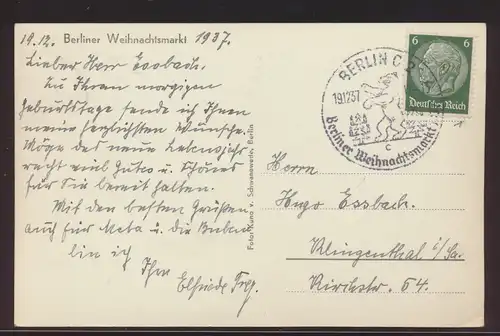 19.12. Berliner Weihnachtsmarkt 1937.
Lieber Herr Essbach.
Zu Ihrem morgigen
Geburtstage sende ich Ihnen
meine herzlichsten Wünsche.
Möge das neue Lebensjahr
recht viel Gutes u. Schönes
für Sie bereit halten.
Mit den besten Grüßen
auch für Meta u. die Buben
bin ich
Ihre
Elfriede
Foto: Kunz v. Schauenwerk, Berlin
BERLIN C
19.12.37
Berliner Weihnachtsmarkt
c
6 6
Deutsches Reich
Herrn
Hugo Essbach.
Klingenthal i/Sa.
Kirchstr. 64.